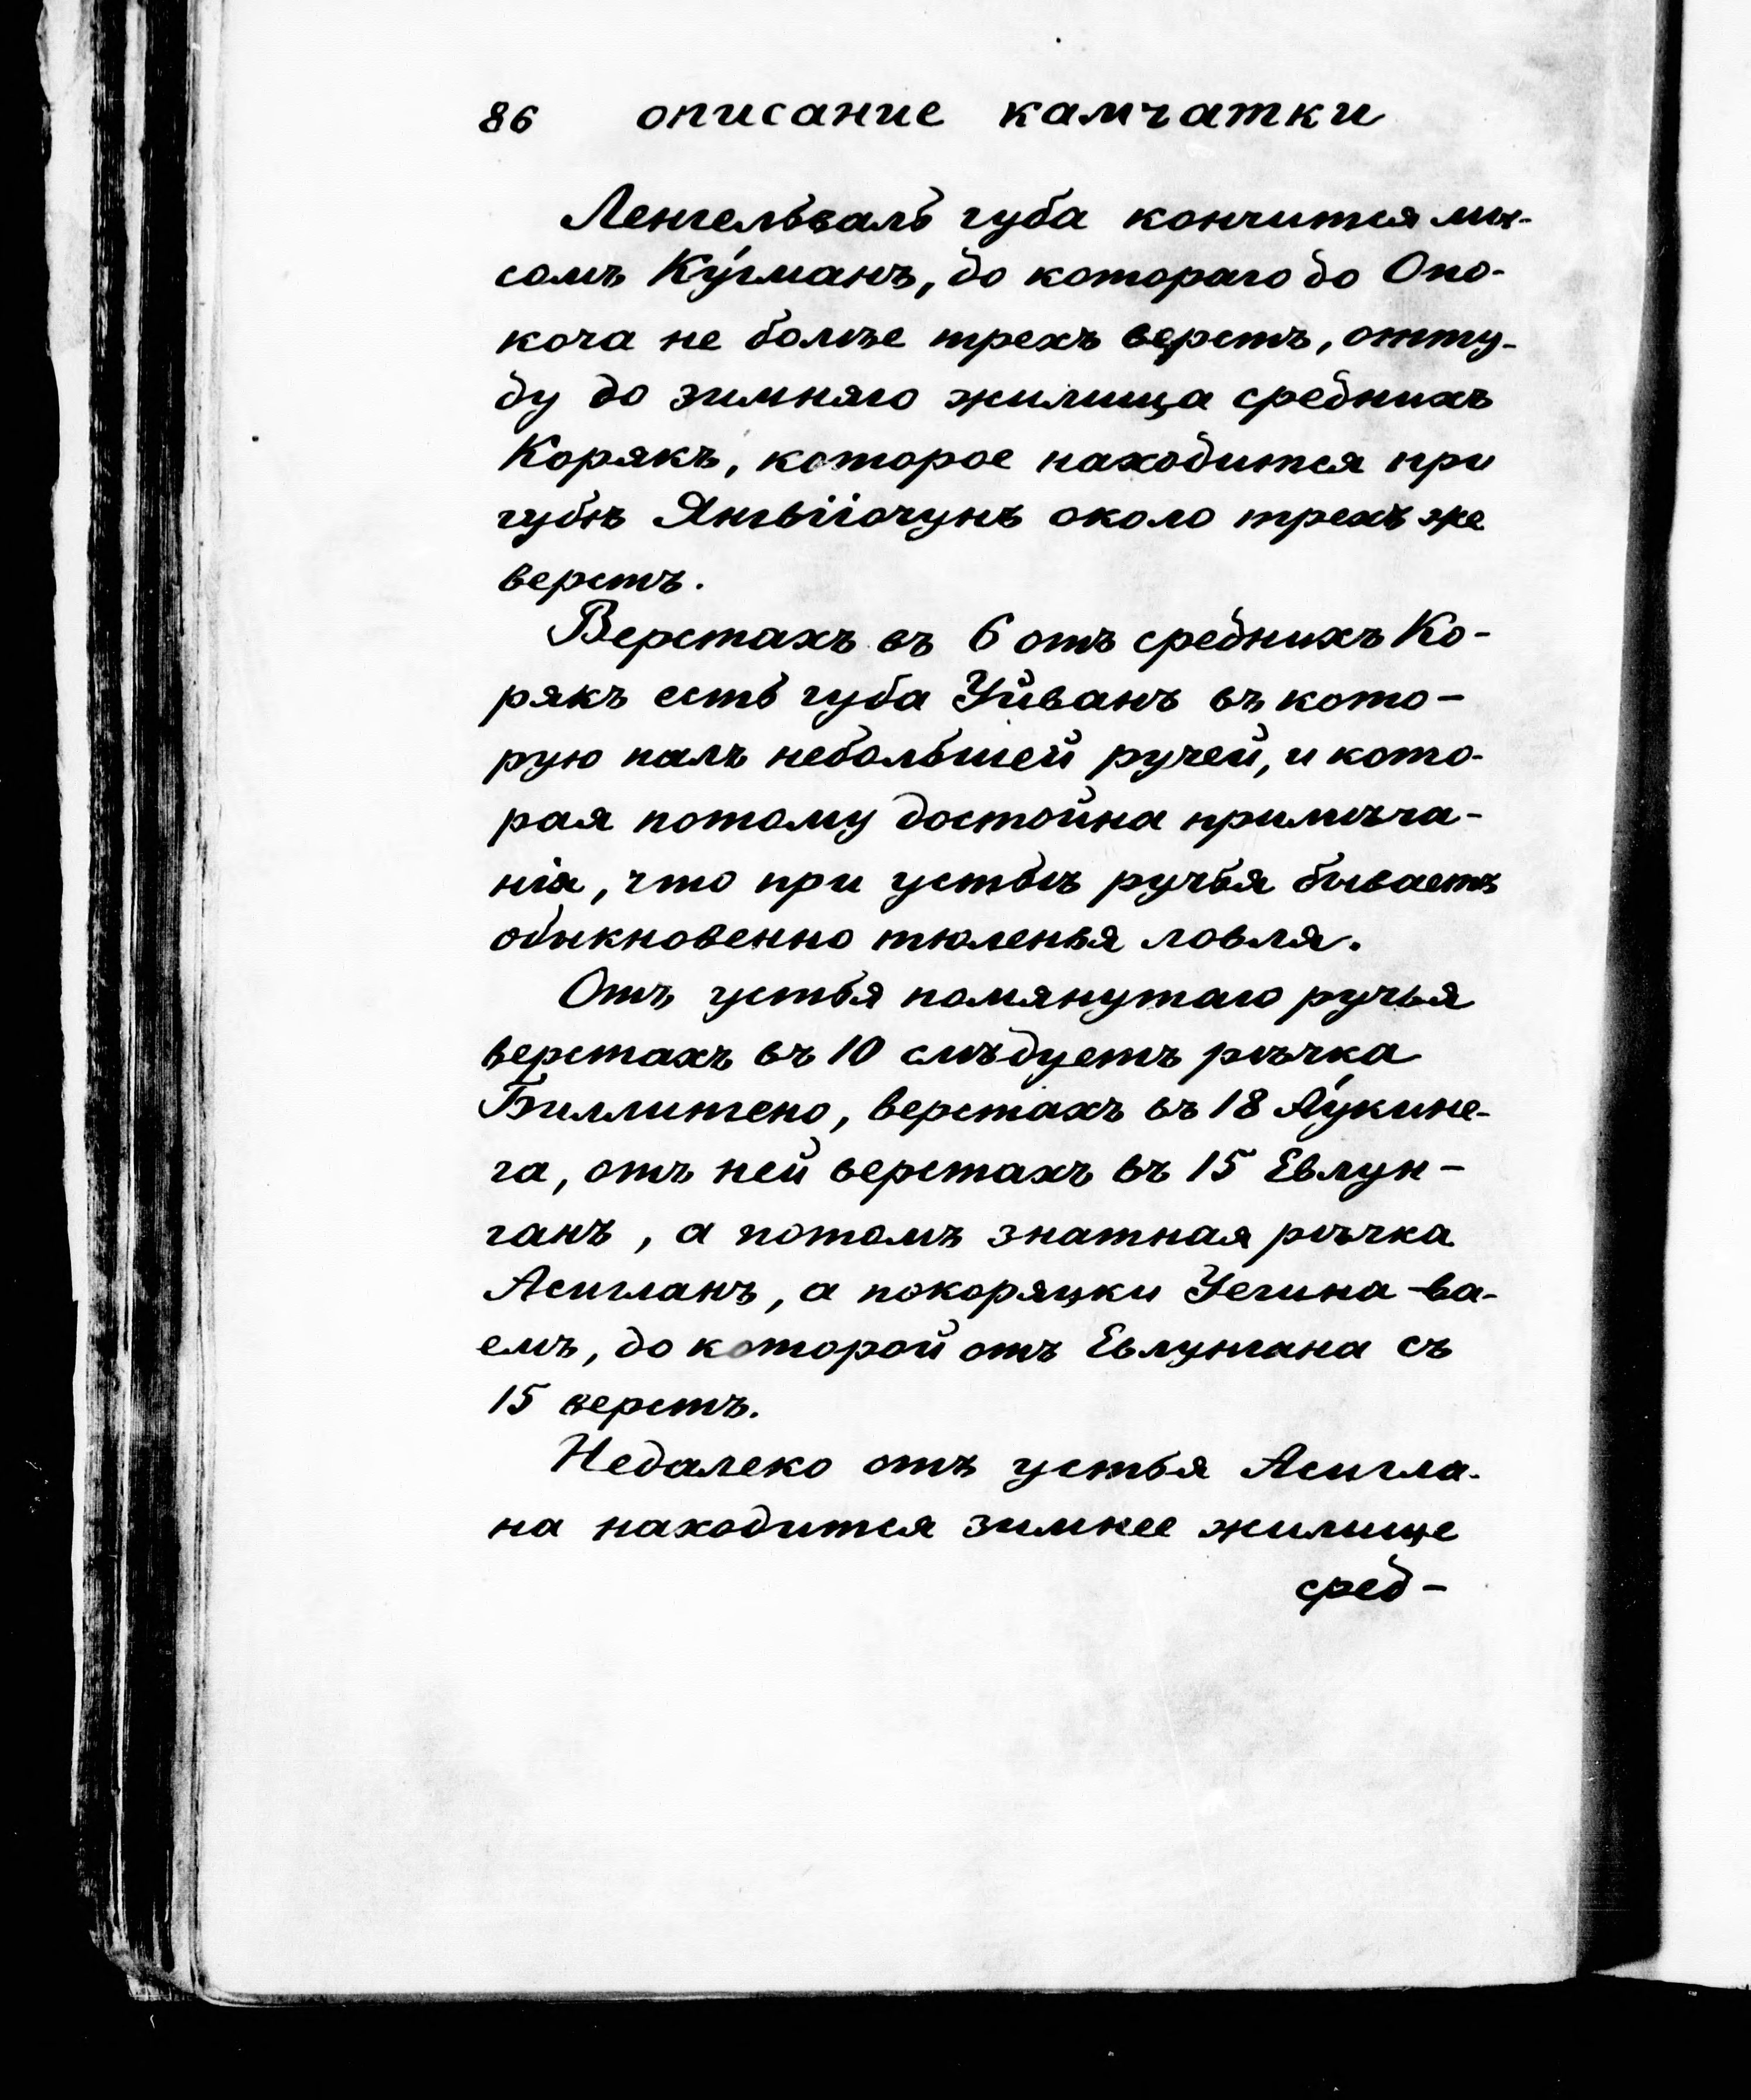 86 описание камчатки
Ленгельвалъ губа кончится мы-
сомъ Ку́гманъ, до котораго до Опо-
коча не болѣе трехъ верстъ, отту-
ду до зимняго жилища среднихъ
Корякъ, которое находится при
губѣ Янгвіючунъ около трехъ же
верстъ.
Верстахъ въ 6 отъ среднихъ Ко-
рякъ есть губа Уйванъ въ кото-
рую палъ небольшей ручей, и кото-
рая потому достойна примѣча-
нія, что при устьѣ ручья бываетъ
обыкновенно тюленья ловля.
Отъ устья помянутаго ручья
верстахъ въ 10 слѣдуетъ рѣчка
Гиллитено, верстахъ въ 18 Ау́кине-
га, отъ ней верстахъ въ 15 Евлун-
ганъ, а потомъ знатная рѣчка
Асигланъ, а покоряцки Уегина-ва-
емъ, до которой отъ Евлунгана съ
15 верстъ.
Недалеко отъ устья Асигла-
на находится зимнее жилище
сред-